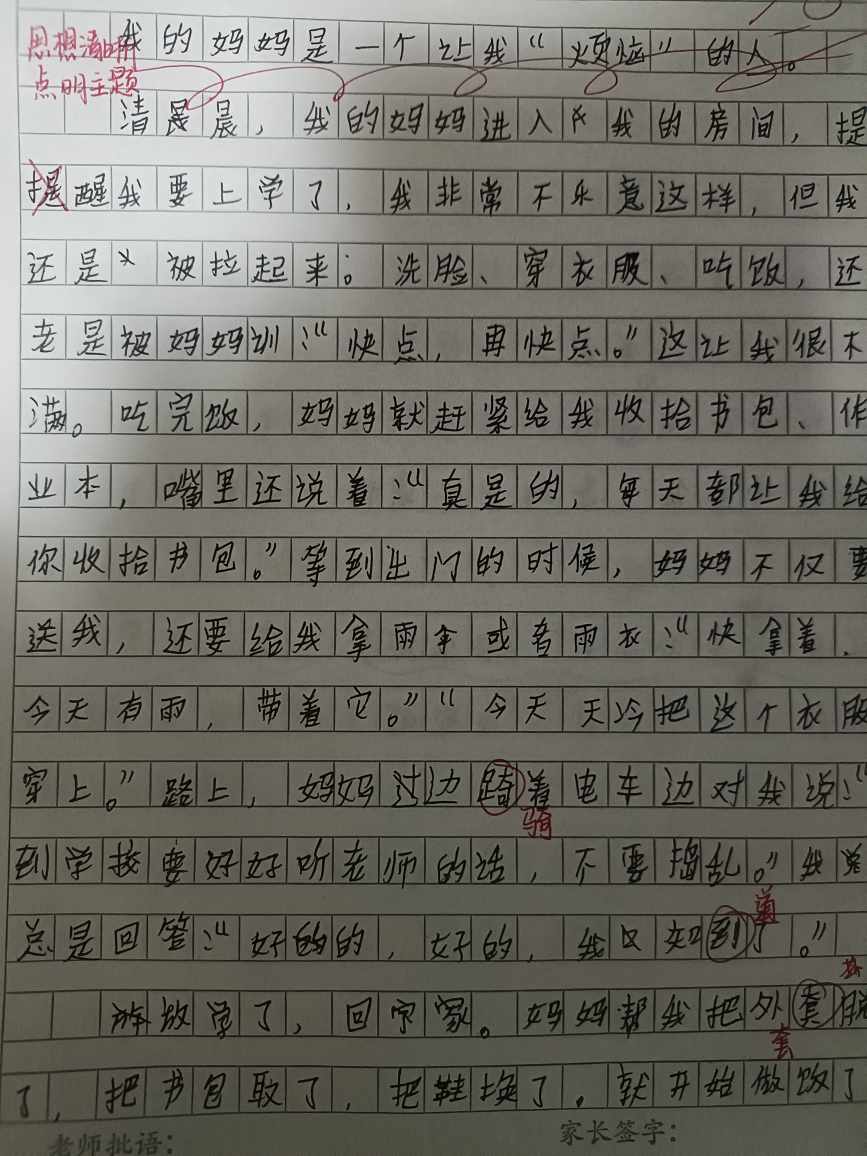 我的妈妈是一个让我“烦恼”的人。
思想清晰
点明主题
清晨,我的妈妈进入我的房间,提
醒我要上学了,我非常不乐意这样,但我
还是被拉起来。洗脸、穿衣服、吃饭,还
老是被妈妈训:“快点,再快点。”这让我很不
满。吃完饭,妈妈就赶紧给我收拾书包、作
业本,嘴里还说着:“真是的,每天都让我给
你收拾书包。”等到出门的时候,妈妈不仅要
送我,还要给我拿雨伞或者雨衣:“快拿着,
今天有雨,带着它。”“今天天冷把这个衣服
穿上。”路上,妈妈过边踦着电车边对我说:“
骑
到学校要好好听老师的话,不要捣乱。”我
道
总是回答:“好的的,好的,我又知到了。”
放学了,回家。妈妈帮我把外套脱
套
了,把书包取了,把鞋换了。就开始做饭了
老师批语:
家长签字: